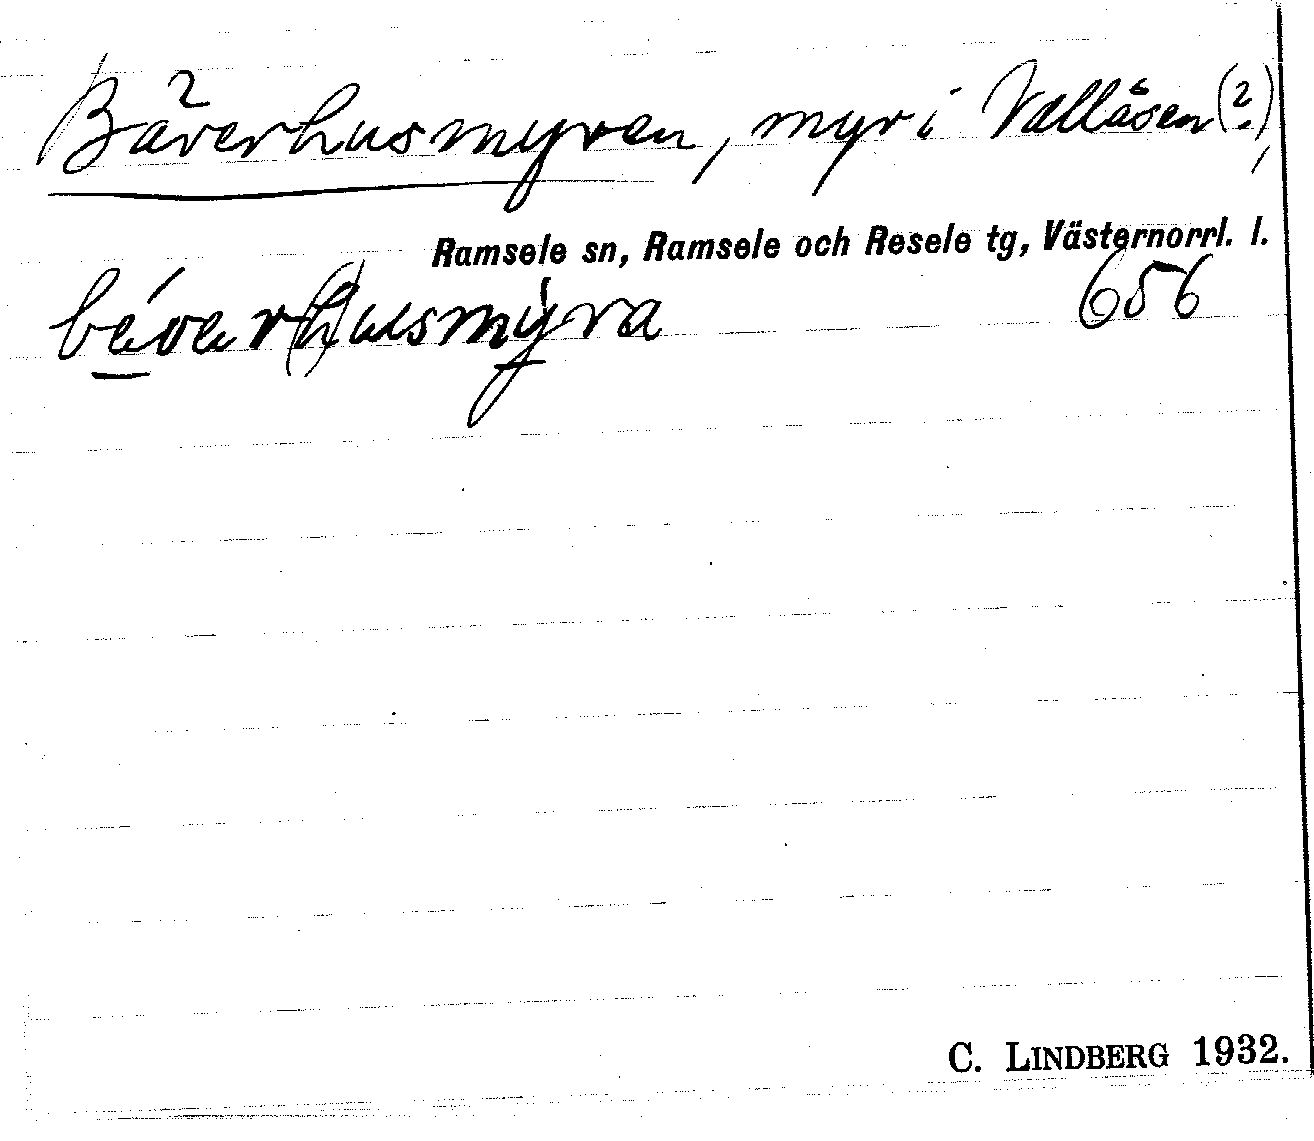 Bäverhusmyren, myr i Vallåsen(?),
Ramsele sn, Ramsele och Resele tg, Västernorrl. l.
béver(h)usmýra 656
C. LINDBERG 1932.